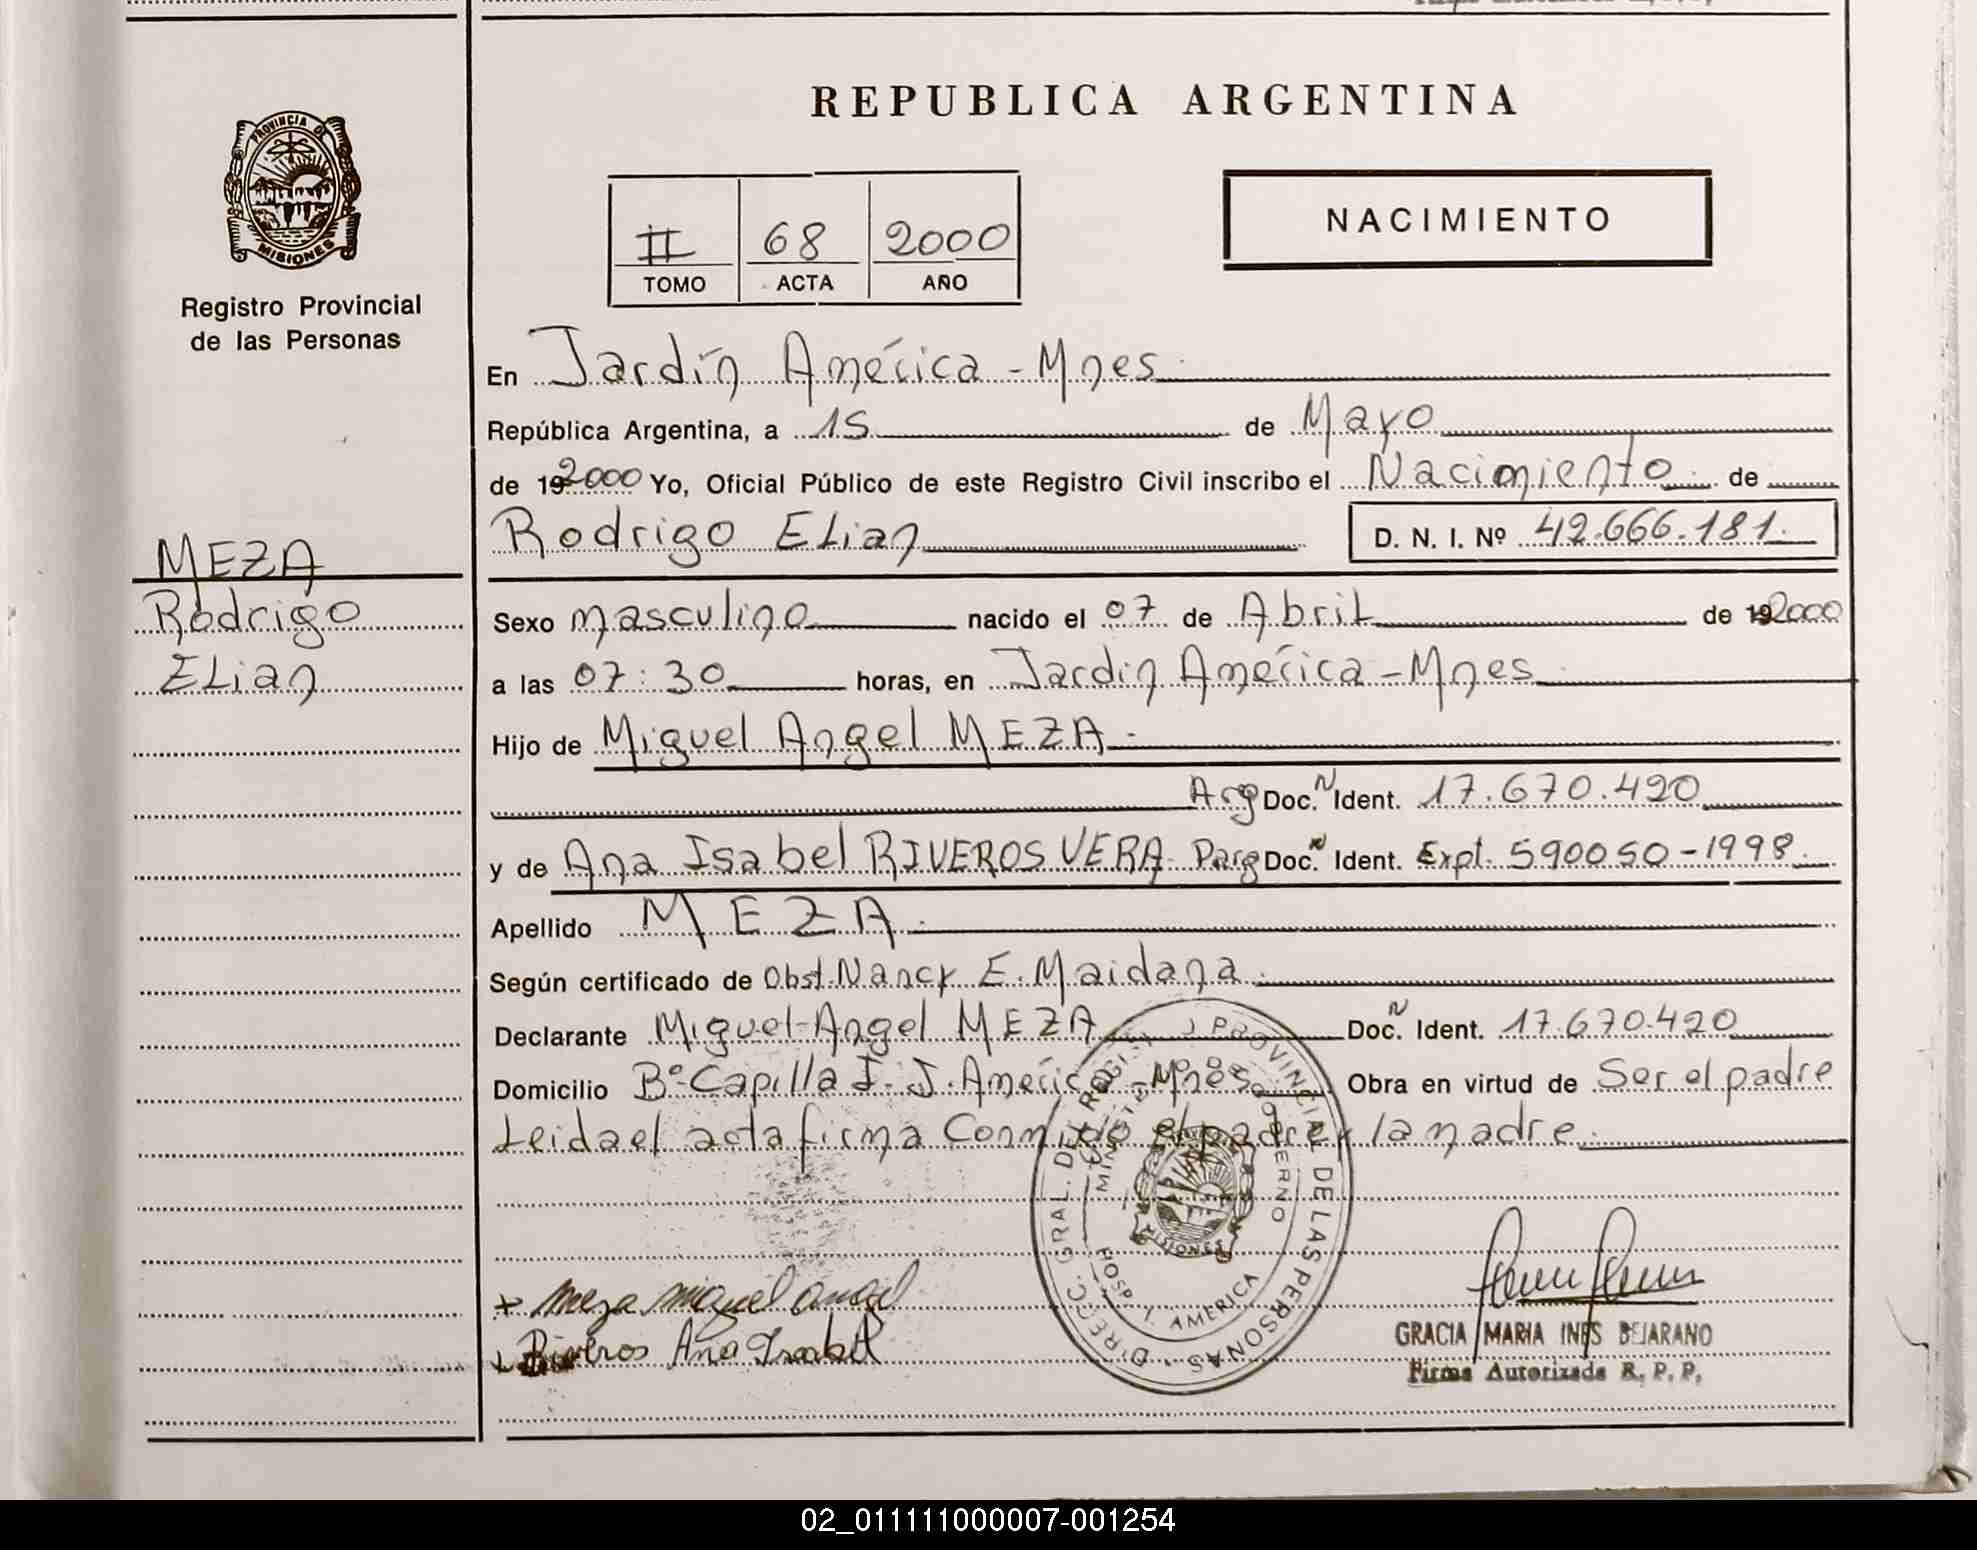 REPUBLICA ARGENTINA
PROVINCIA DE
MISIONES
Registro Provincial
de las Personas
II 68 2000
TOMO ACTA AÑO
NACIMIENTO
En Jardín América - Mnes.
República Argentina, a 15 de Mayo
de 19 2000 Yo, Oficial Público de este Registro Civil inscribo el Nacimiento de
Rodrigo Elian D. N. I. Nº 42.666.181.
MEZA
Rodrigo
Elian
Sexo masculino nacido el 07 de Abril de 19 2000
a las 07:30 horas, en Jardin América - Mnes.
Hijo de Miguel Angel MEZA.
Arg Doc. N Ident. 17.670.420
y de Ana Isabel RIVEROS VERA. Parg Doc. N Ident. Expt. 590050-1998.
Apellido MEZA.
Según certificado de Obst. Nancy E. Maidana.
Declarante Miguel Angel MEZA Doc. N Ident. 17.670.420
Domicilio Bº Capilla I. J. América - Mnes. Obra en virtud de Ser el padre
Leida el acta firma Conmigo el padre y la madre.
DIRECC. GRAL. DEL REGISTRO PROVINCIAL DE LAS PERSONAS
MINISTERIO DE GOBIERNO
HOSP. J. AMERICA
MISIONES
+ Meza Miguel Angel
+ Riveros Ana Isabel
GRACIA MARIA INES BEJARANO
Firma Autorizada R. P. P.
02_011111000007-001254